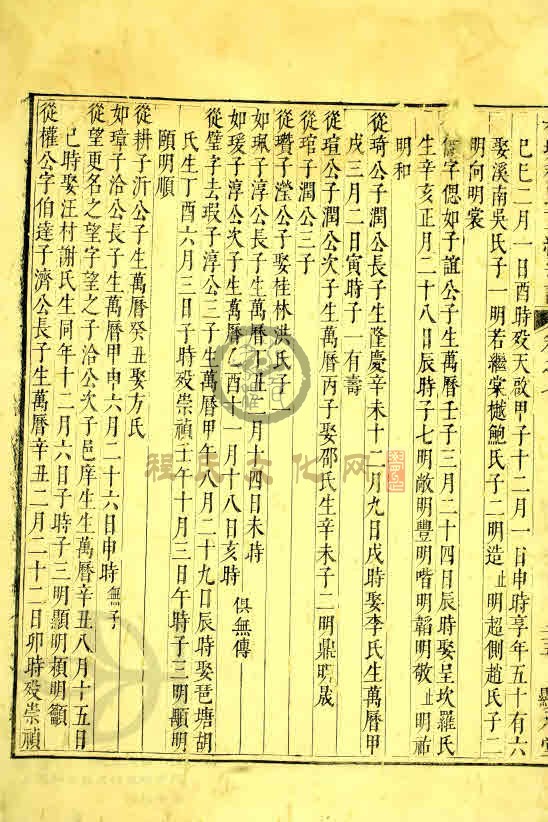 巳七二月一日酉時歿天啟甲子十二月一日申時享年五十有六
娶溪南吳氏子一明若繼棠樾鮑氏子二明造止明超側趙氏子二
明向明裳
字偲如子誼公子生萬曆壬子三月二十四日辰時娶呈坎羅氏
生辛亥正月二十八日辰時子七明敵明豐明喈明韜明敬止明祐
明和
從琦公子潤公長子生隆慶辛未十二月九日戌時娶李氏生萬曆甲
戌三月二日寅時子一有壽
從瑄公子潤公次子生萬曆丙子娶邵氏生辛未子二明鼎明晟
從琯子潤公三子
從瓚子瀅公子娶桂林洪氏子一
如珮子淳公長子生萬曆丑二月十四日未時
如瑗子淳公次子生萬曆乙酉十一月十八日亥時 俱無傳
從璧字去瑕子淳公三子生萬曆甲午八月二十九日辰時娶琶塘胡
氏生丁酉六月三日子時歿崇禎壬午十月三日午時子三明顒明
頤明順
從耕子沂公子生萬曆癸丑娶方氏
如璋子洽公長子生萬曆甲申六月二十六日申時無子
從望更名之望字望之子洽公次子邑庠生生萬曆辛丑八月十五日
巳時娶汪村謝氏生同年十二月六日子時子三明顯明穎明籲
從權公字伯達子濟公長子生萬曆辛丑二月二十二日卯時歿崇禎
程氏文化网